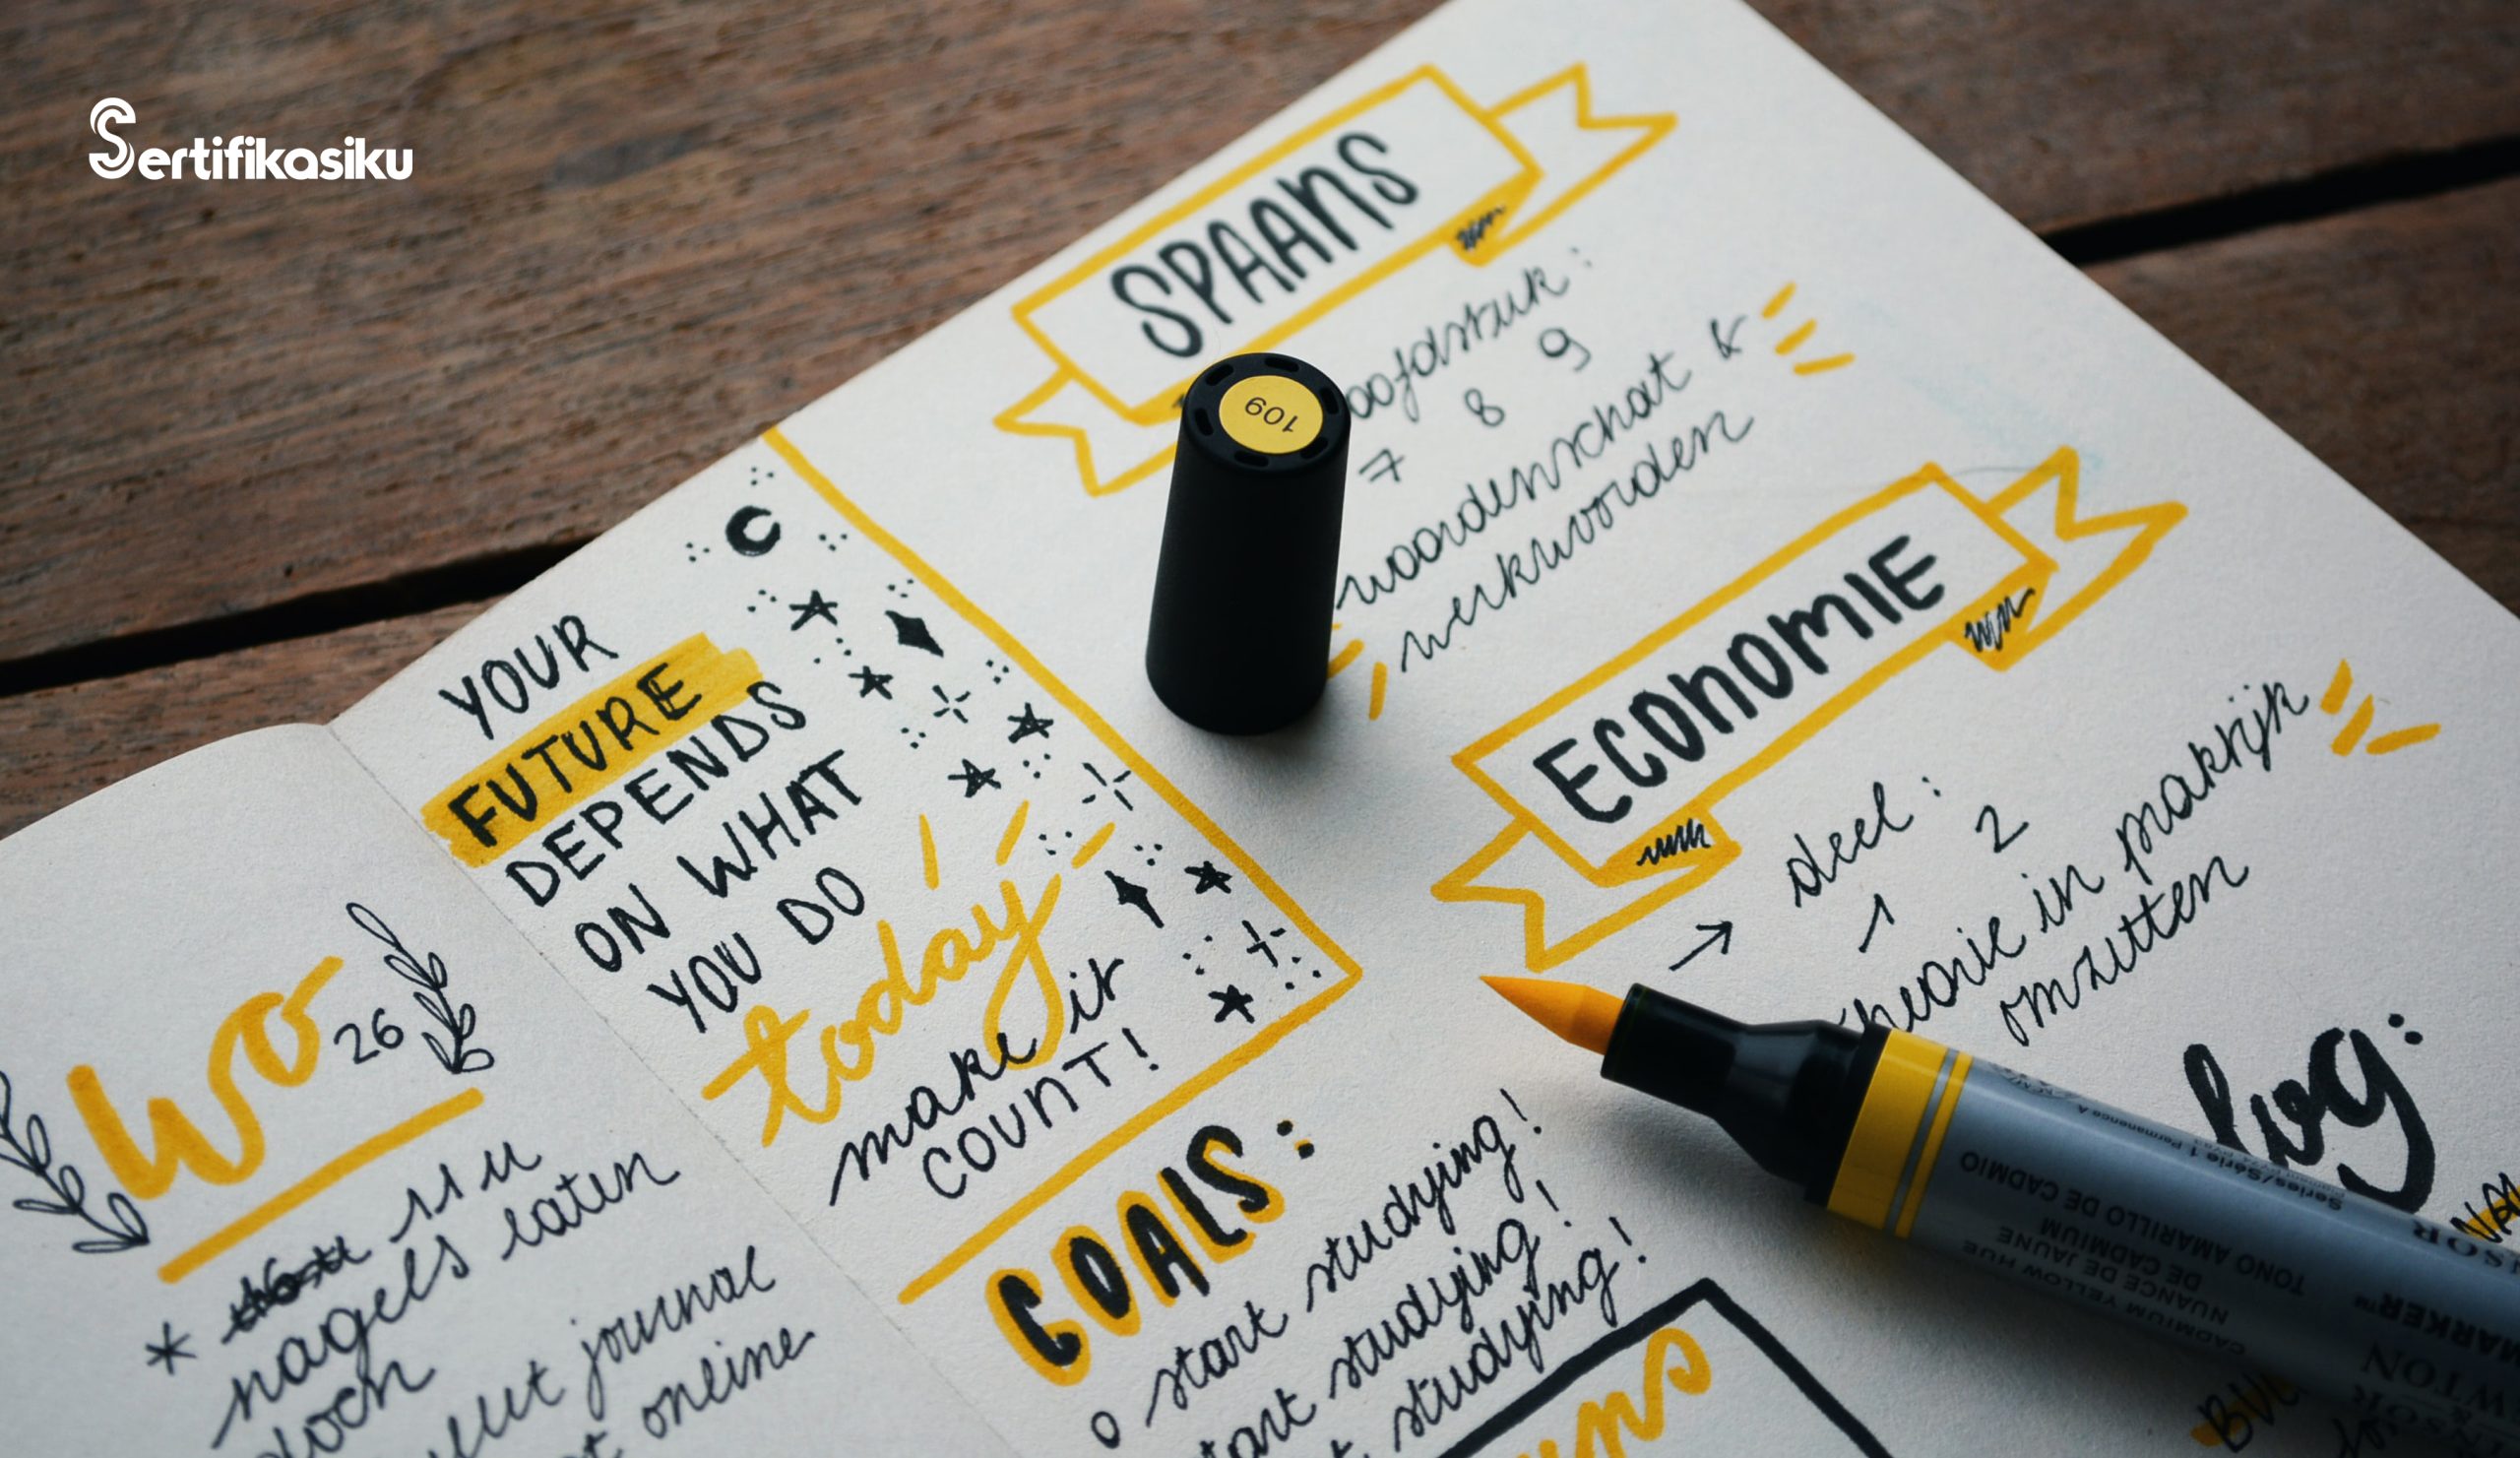 Sertifikasiku
SPAANS
hoofdstuk:
7 8 9
woordenschat &
werkwoorden
109
ECONOMIE
→ deel:
1 2
theorie in praktijk
omzetten
YOUR
FUTURE
DEPENDS
ON WHAT
YOU DO
today
make it
COUNT!
GOALS:
o start studying!
start studying!
studying!
WO
26
* 11 u
nagels laten
doen
bullet journal
online
Series/Série 1 Permanence A
CADMIUM YELLOW HUE
NUANCE DE JAUNE
DE CADMIUM
TONO AMARILLO DE CADMIO
MARKER™